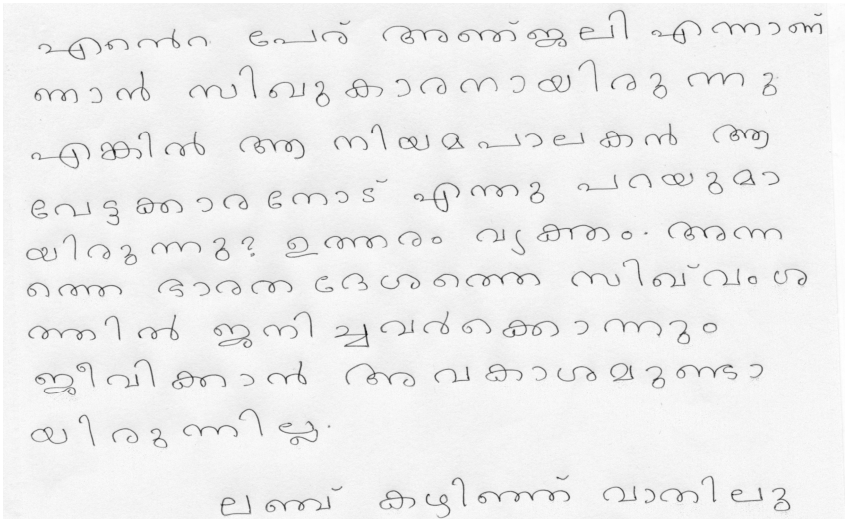 എൻെറ പേര് അഞ്ജലി എന്നാണ്
ഞാൻ സിഖുകാരനായിരുന്നു
എങ്കിൽ ആ നിയമപാലകൻ ആ
വേട്ടക്കാരനോട് എന്തു പറയുമാ
യിരുന്നു? ഉത്തരം വ്യക്തം. അന്ന
ത്തെ ഭാരത ദേശത്തെ സിഖ്‌വംശ
ത്തിൽ ജനിച്ചവർക്കൊന്നും
ജീവിക്കാൻ അവകാശമുണ്ടാ
യിരുന്നില്ല.
ലഞ്ച് കഴിഞ്ഞ് വാതിലു